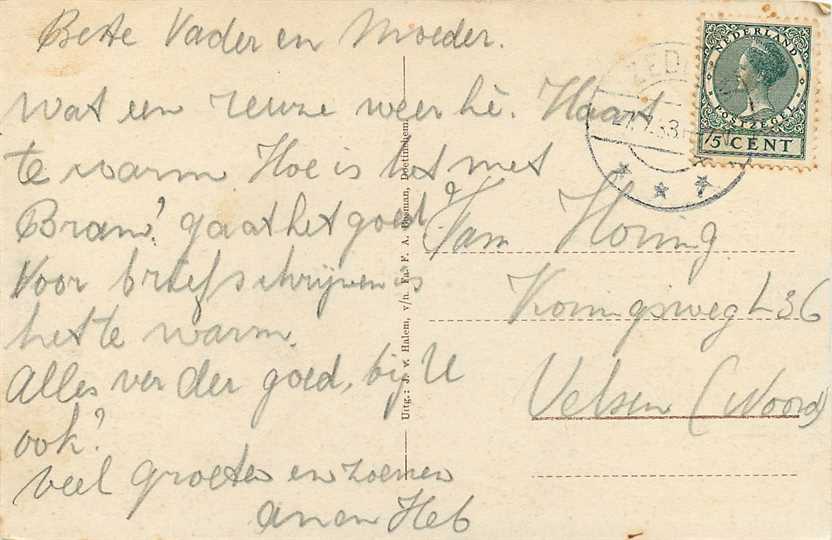 Beste Vader en Moeder.
wat een reuze weer hè. Haast
te warm Hoe is het met
Bram? gaat het goed?
Voor briefschrijven is
het te warm.
Alles verder goed, bij U
ook?
veel groeten en zoenen
an en Heb
Uitg.: J. v. Halem, v/h Fa. F. A. Doetinchem
NEDERLAND
POSTZEGEL
5 CENT
ZED
27.7.33
Jan Honing
Koningsweg L 36
Velsen (Noord)